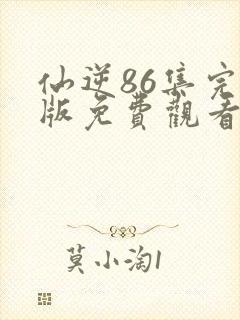 仙逆86集完
版免費觀看
莫小淘1